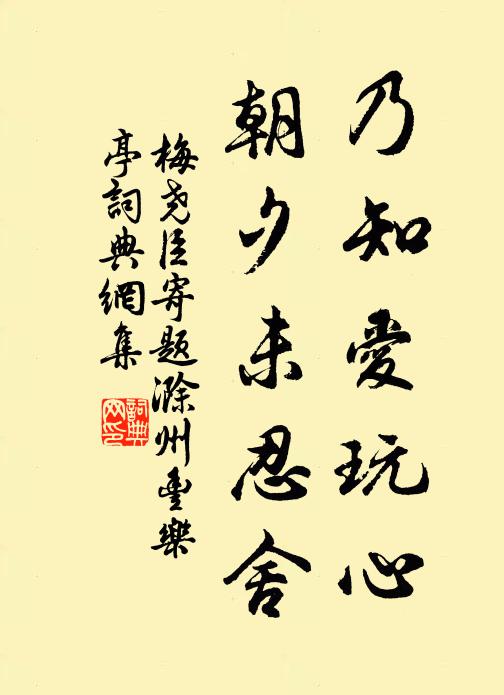 乃知愛玩心
朝夕未忍舍
梅尧臣寄題滁州豊樂
亭詞典網集
詞典
网印